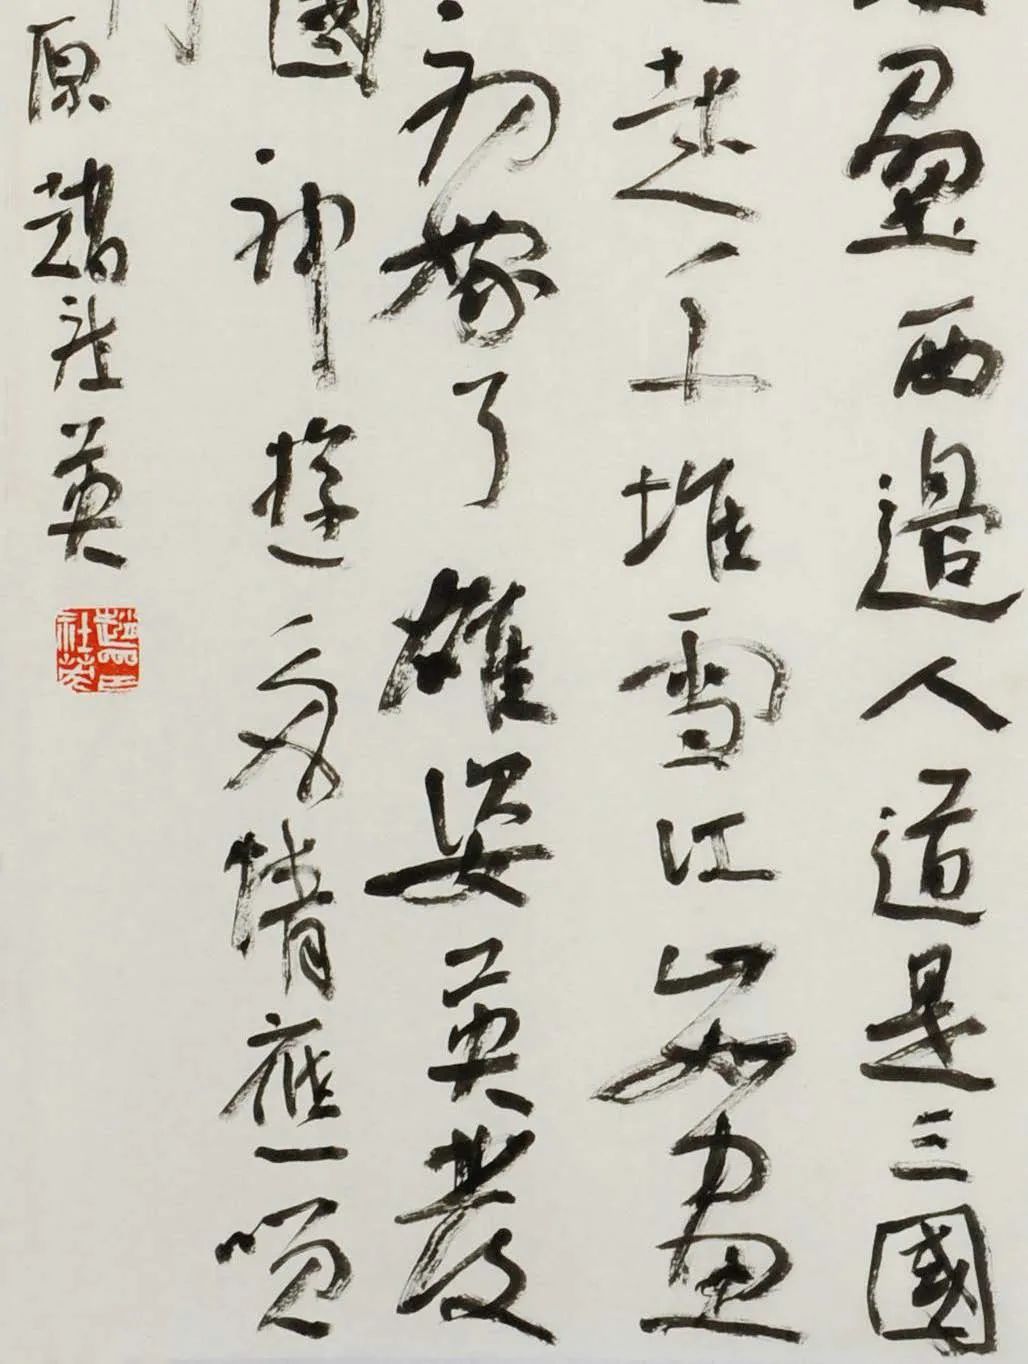 壘西邊人道是三國
起千堆雪江山如畫
初嫁了雄姿英發
國神遊多情應
原趙社英
趙社英印